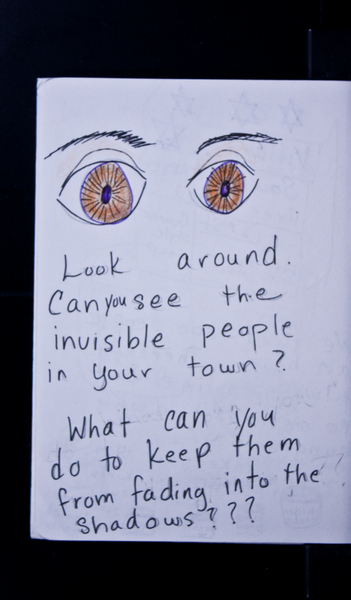 Look around.
Can you see the
invisible people
in your town?
What can you
do to keep them
from fading into the
shadows???